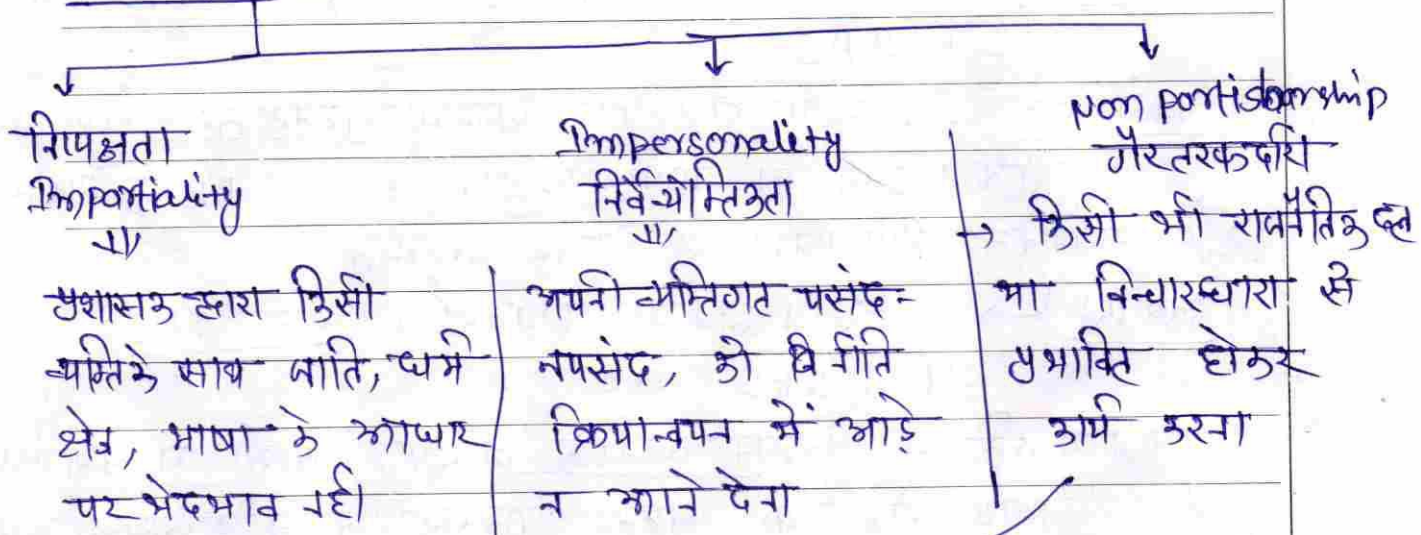 निपक्षता
Impartiality
प्रशासक द्वारा किसी
व्यक्ति के साथ जाति, धर्म
क्षेत्र, भाषा के आधार
पर भेदभाव नहीं
Impersonality
निर्वैयक्तिकता
अपनी व्यक्तिगत पसंद-
नपसंद, को नीति
क्रियान्वयन में आड़े
न आने देना
Non partisanship
गैरतरफदारी
→ किसी भी राजनैतिक दल
या विचारधारा से
प्रभावित होकर
कार्य करना